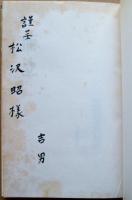 謹呈
松沢昭様
吉男